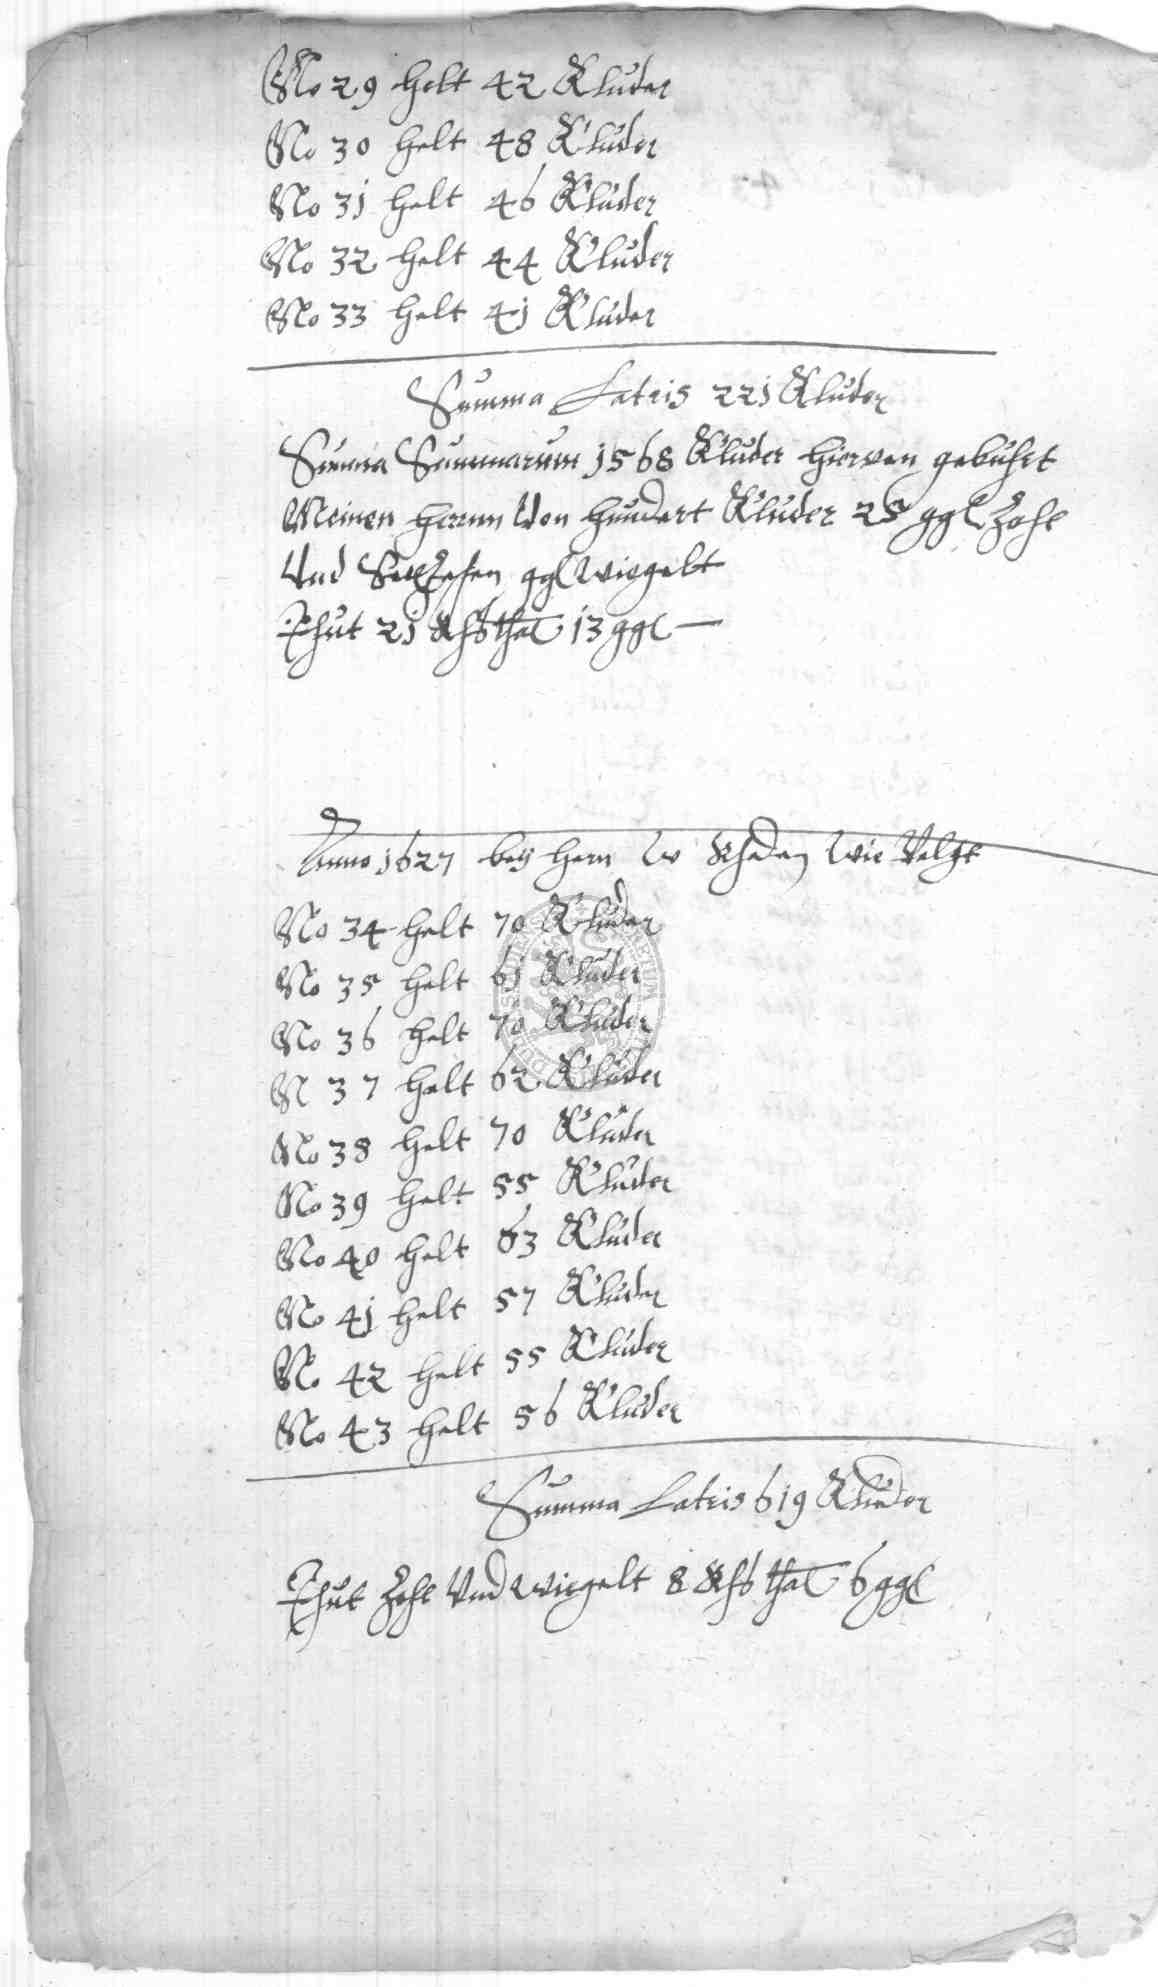 No 29 helt 42 Kluder
No 30 helt 48 Kluder
No 31 helt 46 Kluder
No 32 helt 44 Kluder
No 33 helt 41 Kluder
Summa Lateris 221 Kluder
Summa Summarum 1568 Kluder hiervon gebührt
Meinen Herrnn Von hundert Kluder 25 ggl Zohl
Und Sechzehen ggl wiegelt
Thut 21 Rhsthal 13 ggl
Anno 1627 bey Hern Rheden wie Volgt
No 34 helt 70 Kluder
No 35 helt 61 Kluder
No 36 helt 70 Kluder
N 37 helt 62 Kluder
No 38 helt 70 Kluder
No 39 helt 55 Kluder
No 40 helt 63 Kluder
No 41 helt 57 Kluder
No 42 helt 55 Kluder
No 43 helt 56 Kluder
Summa Lateris 619 Kluder
Thut Zohl Und wiegelt 8 Rhsthal 6 ggl